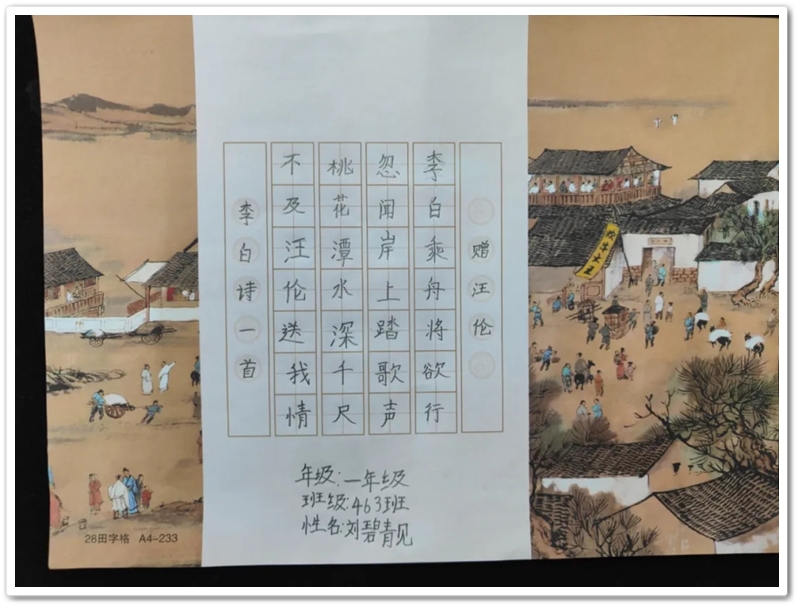 赠汪伦
李白乘舟将欲行
忽闻岸上踏歌声
桃花潭水深千尺
不及汪伦送我情
李白诗一首
年级:一年级
班级:463班
性名:刘碧靓
28田字格 A4-233